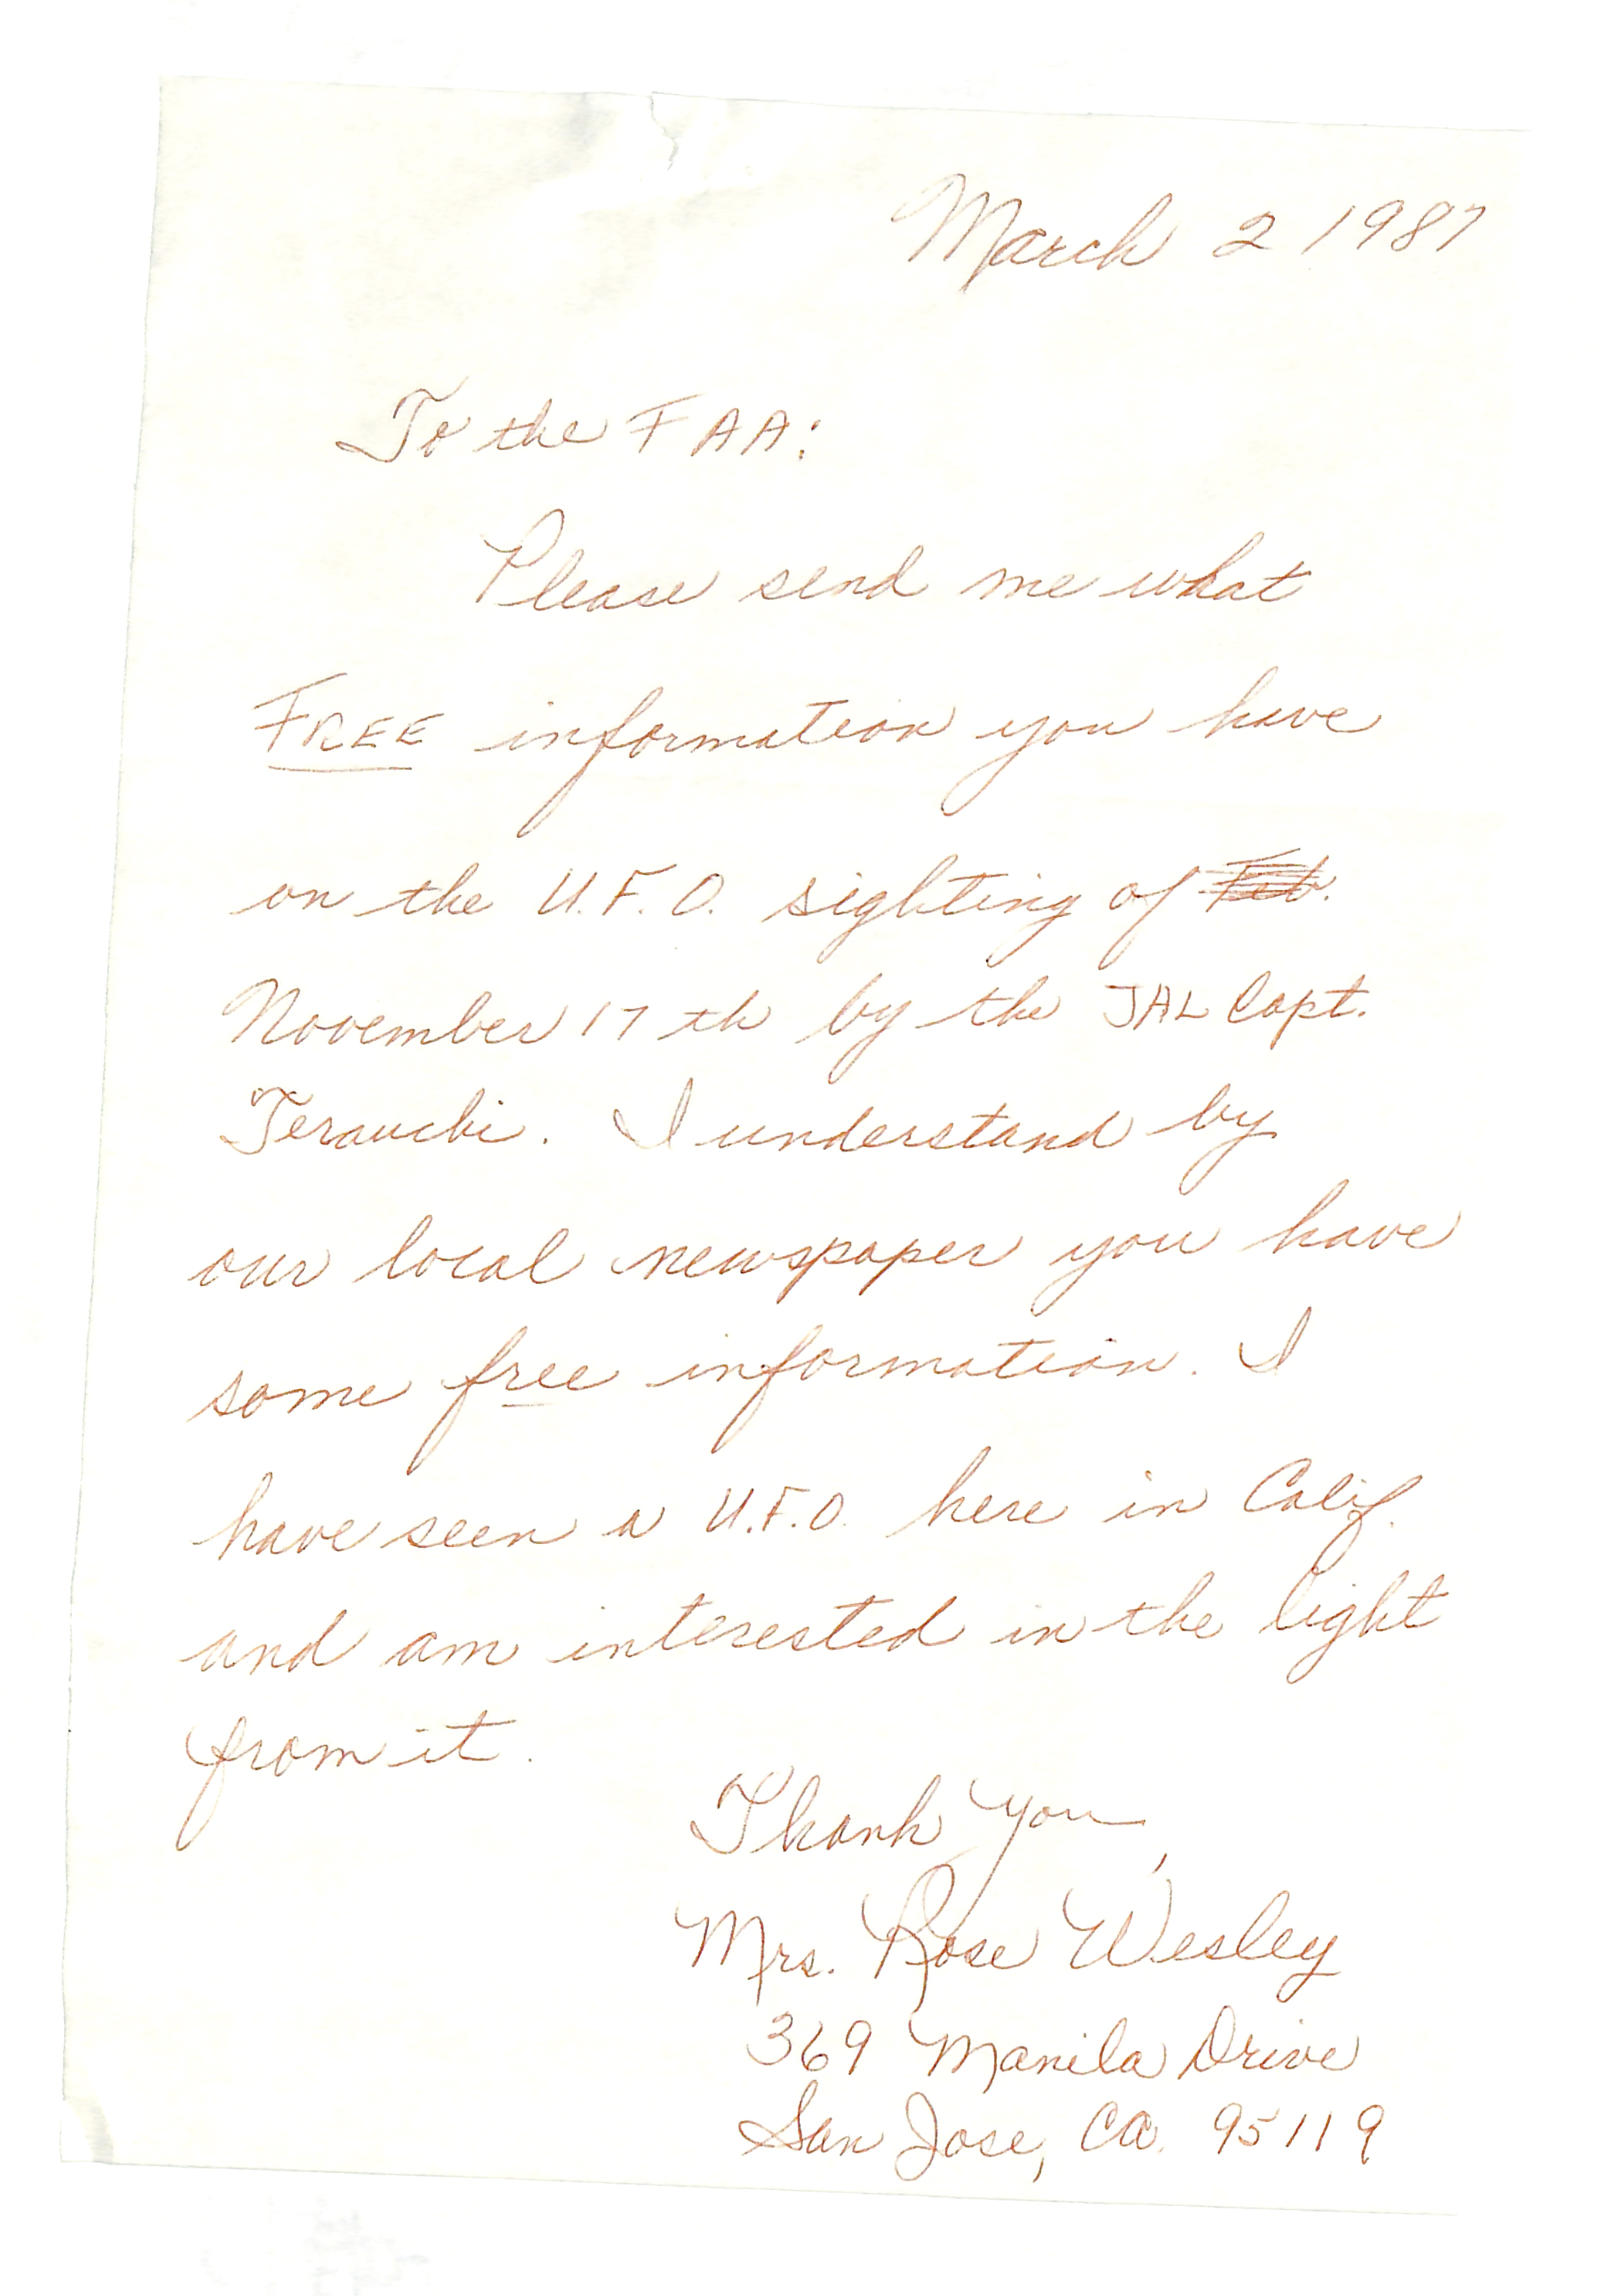 March 2 1987
To the FAA:
Please send me what
FREE information you have
on the U.F.O. sighting of Feb.
November 17th by the JAL Capt.
Terauchi. I understand by
our local newspaper you have
some free information. I
have seen a U.F.O. here in Calif.
and am interested in the light
from it.
Thank you,
Mrs. Rose Wesley
369 Manila Drive
San Jose, CA. 95119